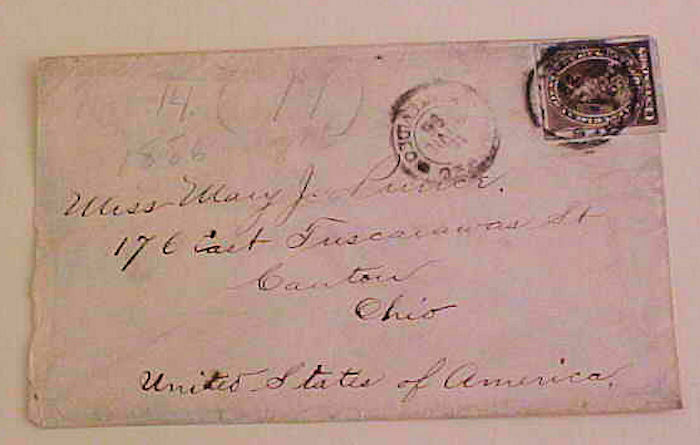 14. (11)
1886
Miss Mary J.
176 East Tuscarawas St
Canton
Ohio
United States of America.